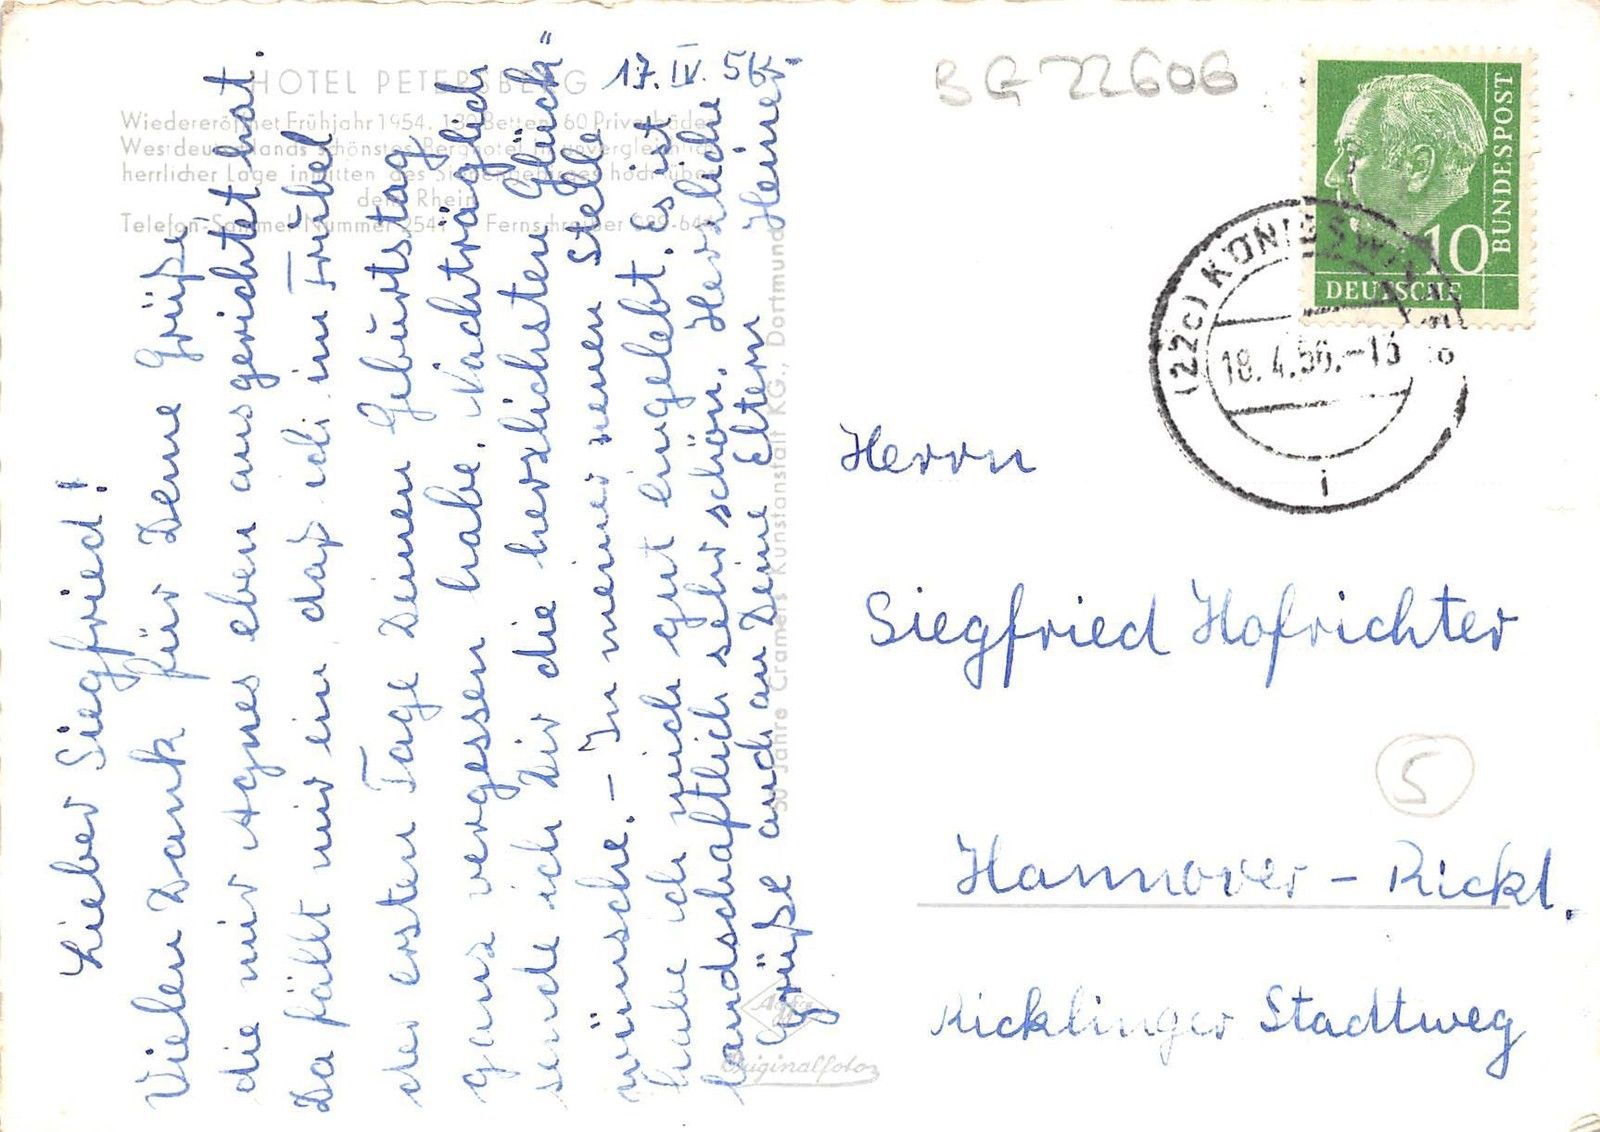 HOTEL PETERSBERG
Wiedereröffnet Frühjahr 1954. 120 Betten, 60 Privatbäder
Westdeutschlands schönstes Berghotel in unvergleichlich
herrlicher Lage inmitten des Siebengebirges hoch über
dem Rhein
Telefon-Sammel-Nummer 2541 Fernschreiber
17. IV. 56.
Lieber Siegfried!
Vielen Dank für Deine Grüße,
die mir Agnes eben ausgerichtet hat.
Da fällt mir ein daß ich im Trubel
der ersten Tage Deinen Geburtstag
ganz vergessen habe. Nachträglich
sende ich Dir die herzlichsten Glück=
wünsche. - In meiner neuen Stelle
habe ich mich gut eingelebt. Es ist
landschaftlich sehr schön. Herzliche
Grüße auch an Deine Eltern Heiner
50 Jahre Cramers Kunstanstalt KG., Dortmund
Agfa
Originalfoto
BG 22606
10
BUNDESPOST
DEUTSCHE
(22c) KÖNIGSWINTER
18.4.56.-13
i
Herrn
Siegfried Hofrichter
5
Hannover - Rickl.
Ricklinger Stadtweg